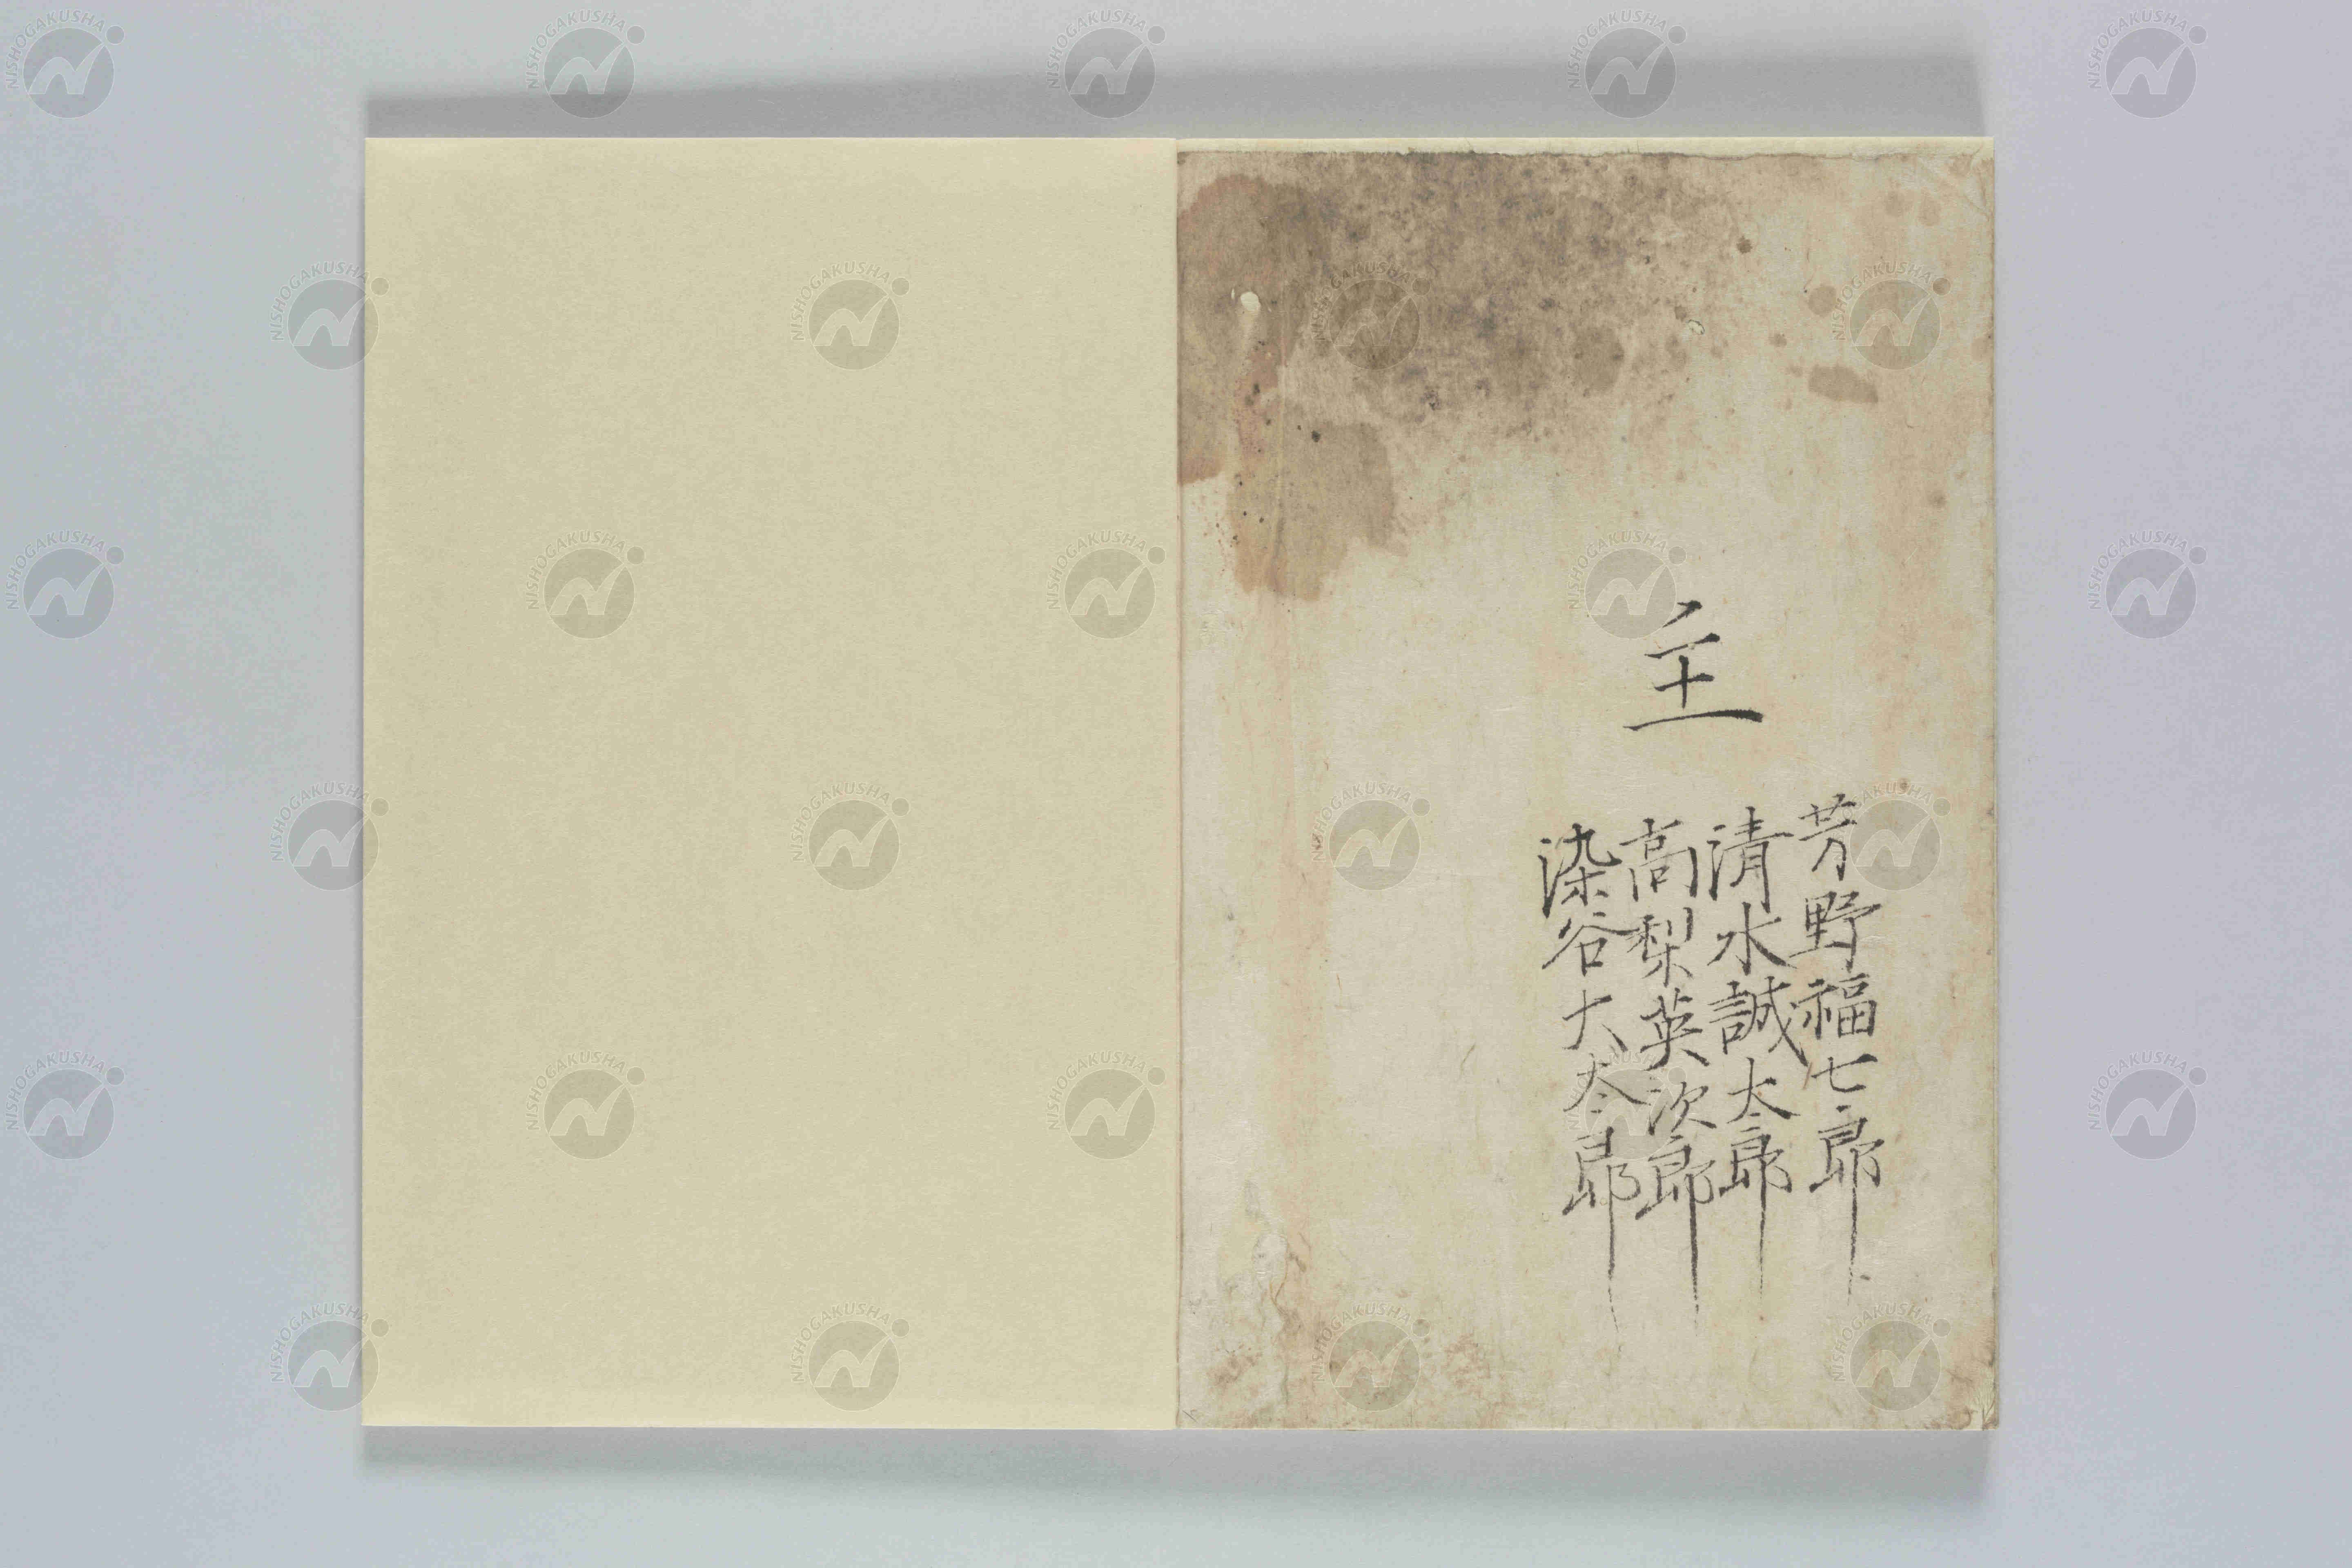 主
芳野福七郎
清水誠太郎
高梨英次郎
染谷大太郎
NISHOGAKUSHA